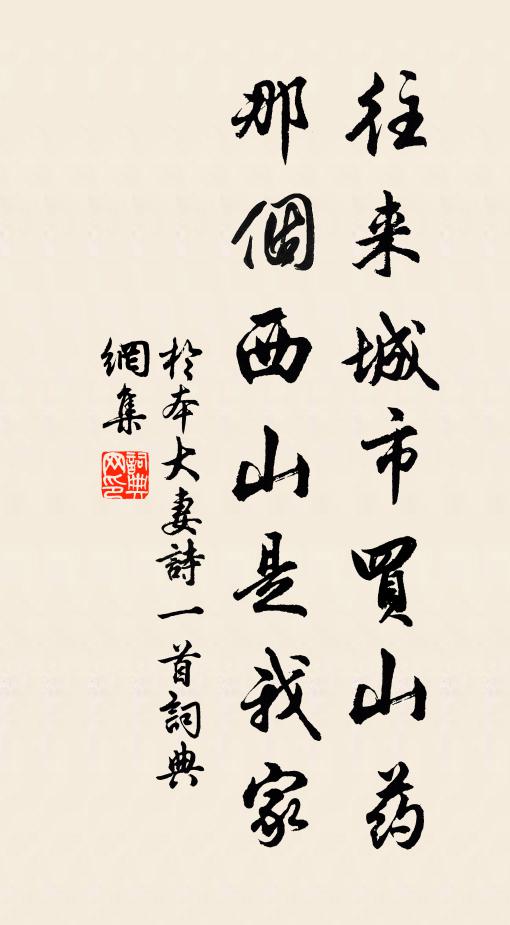 往来城市買山药
那個西山是我家
於本大妻詩一首詞典
網集
詞典網印